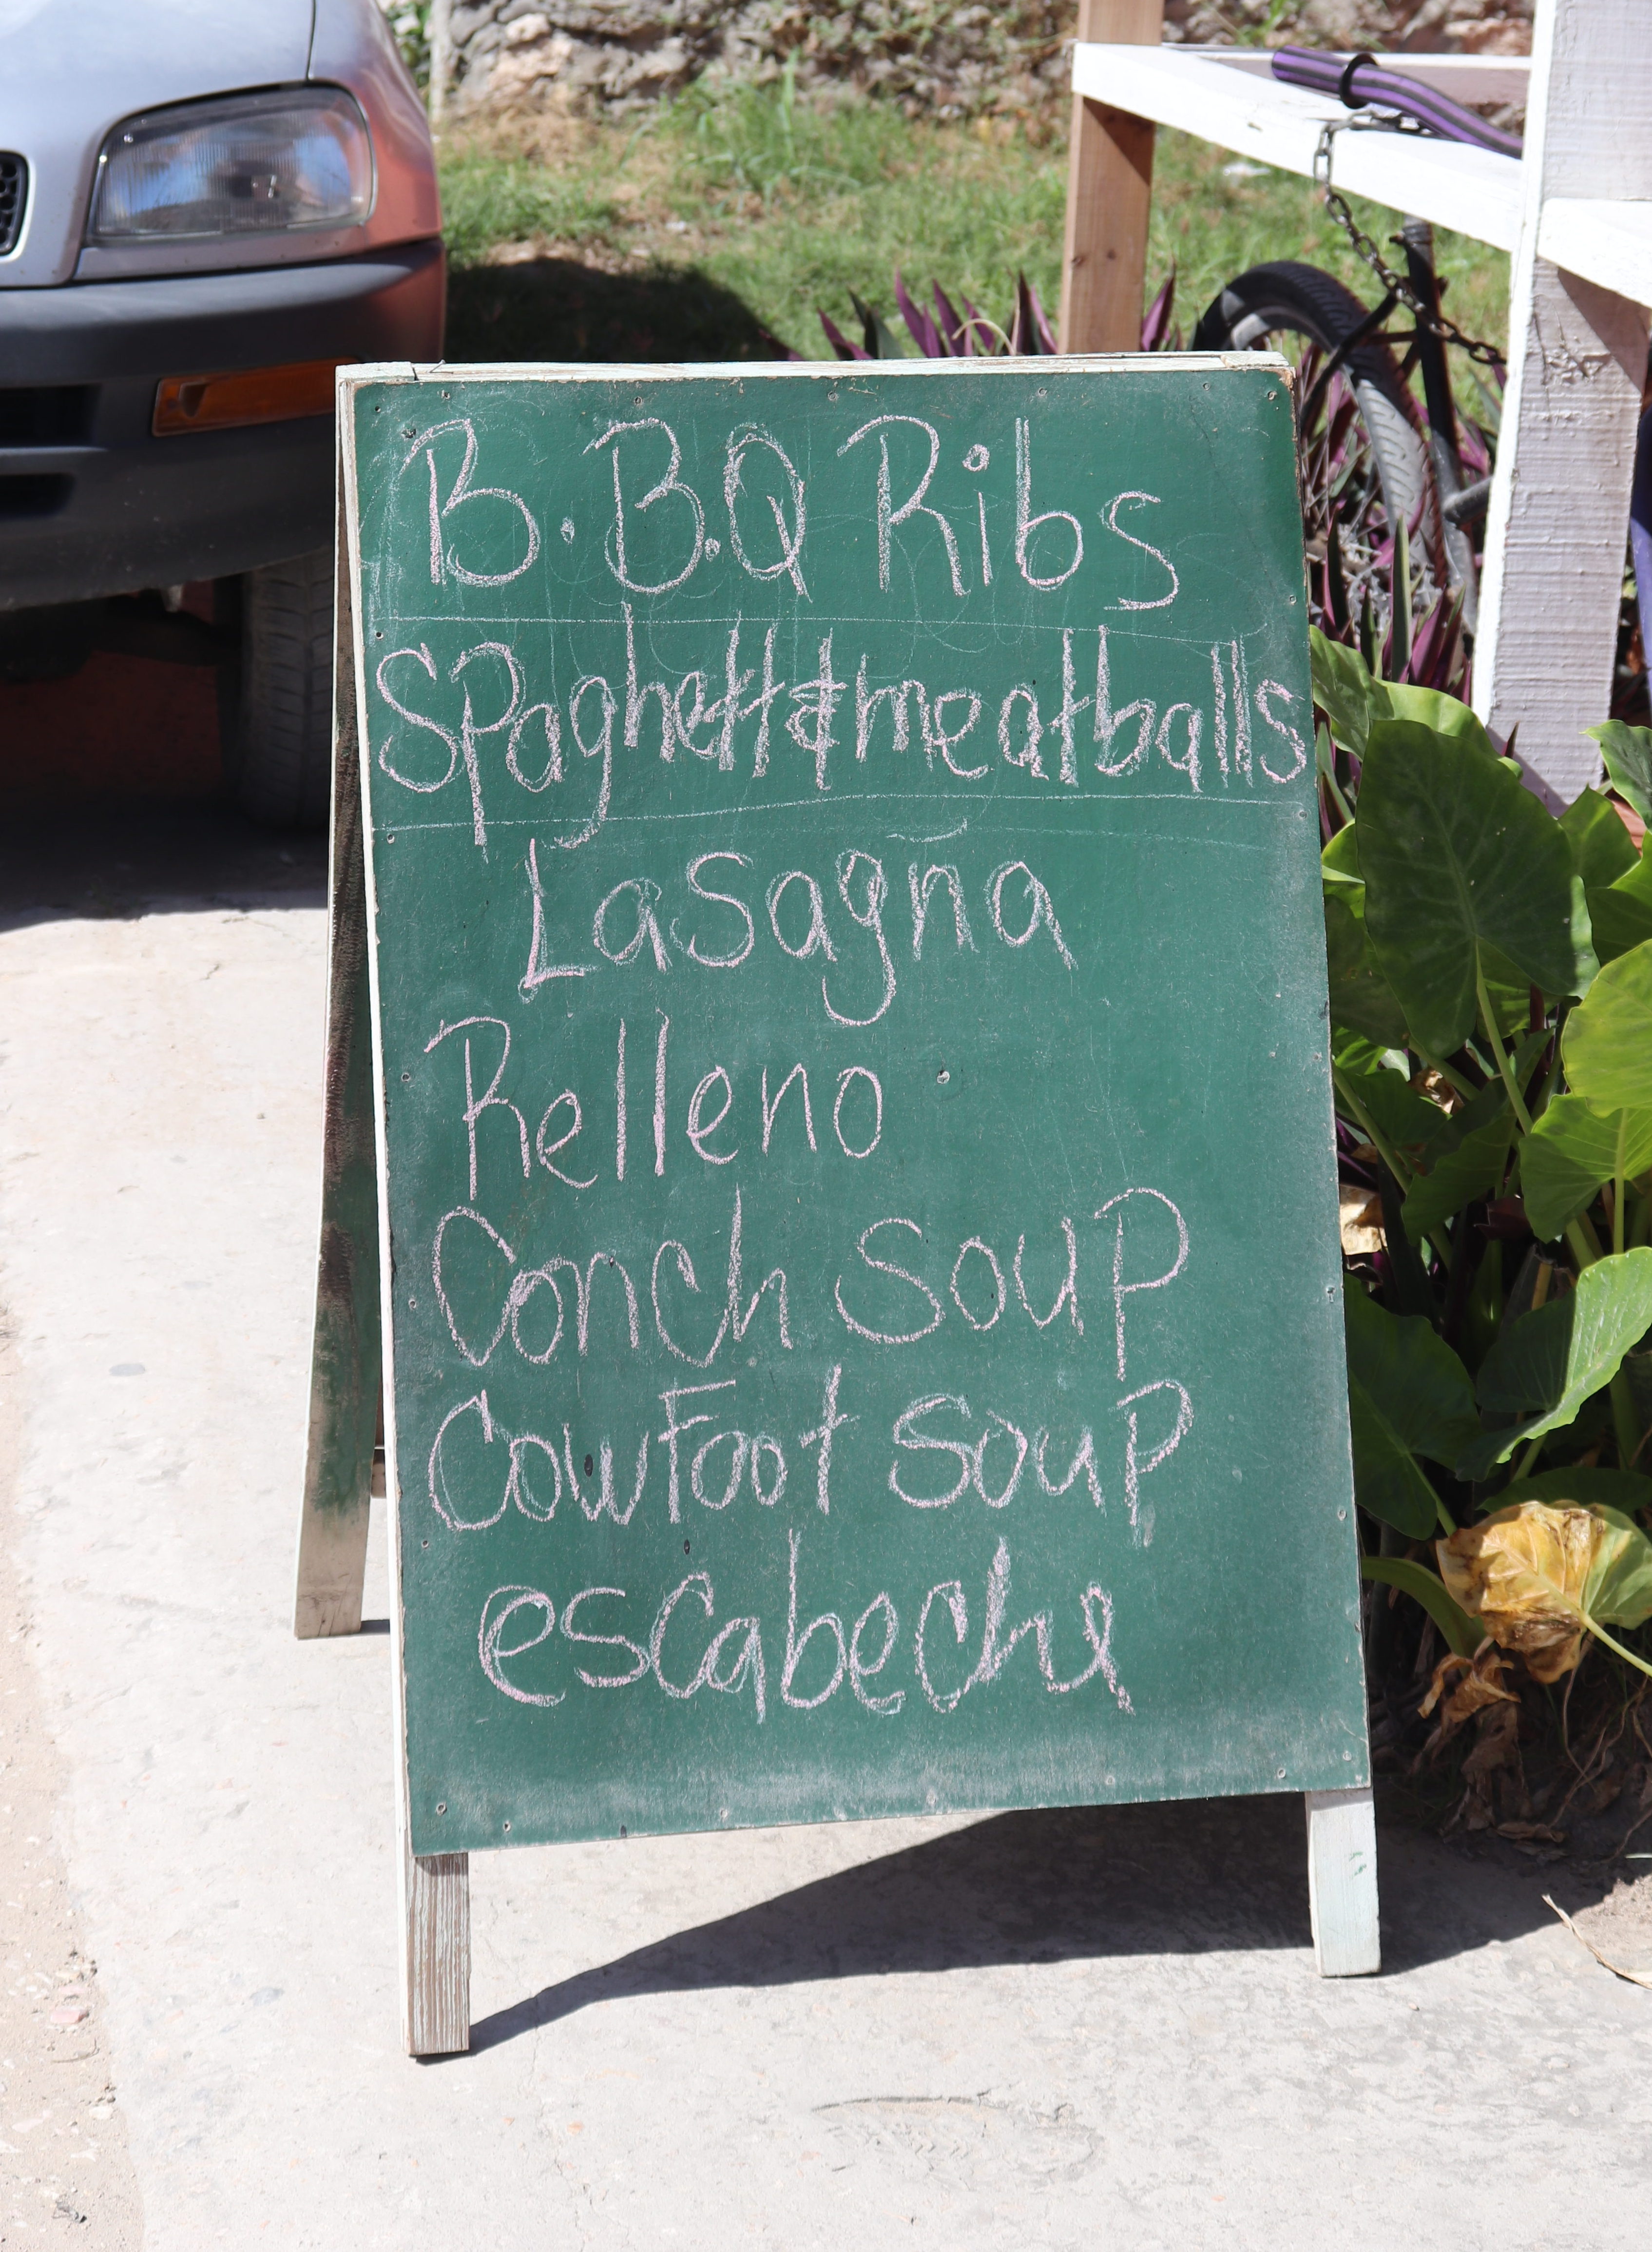 B.B.Q Ribs
Spaghetti & meatballs
Lasagña
Relleno
Conch Soup
Cowfoot Soup
escabeche